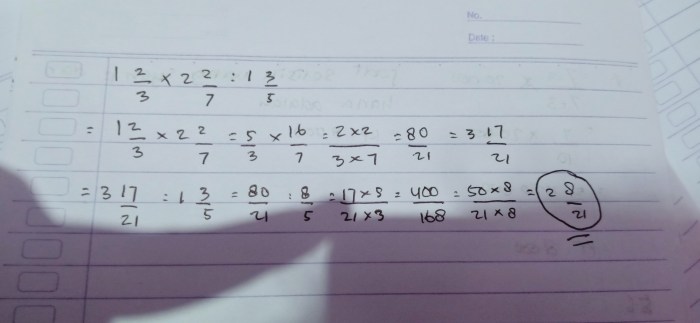 No.
Date:
1 2/3 x 2 2/7 : 1 3/5
= 1 2/3 x 2 2/7 = 5/3 x 16/7 = 2x2/3x7 = 80/21 = 3 17/21
= 3 17/21 : 1 3/5 = 80/21 : 8/5 = 17x5/21x3 = 400/168 = 50x8/21x8 = 2 8/21